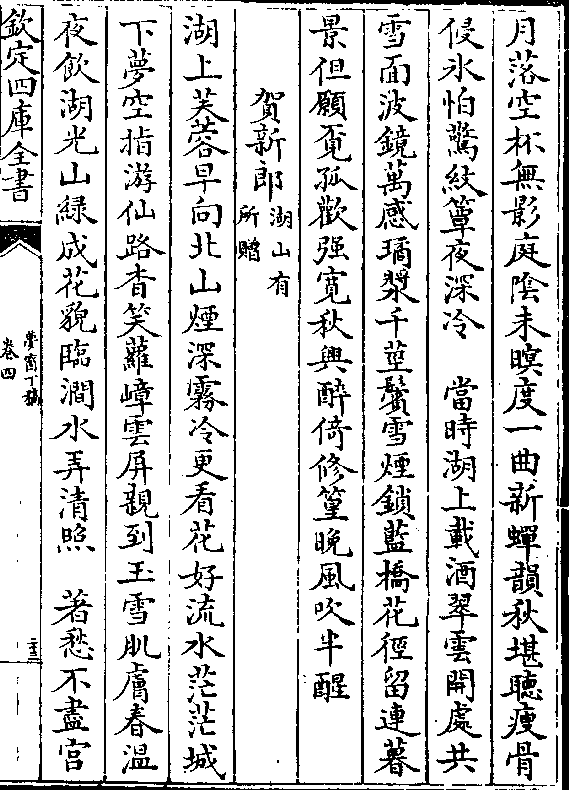 月落空杯無影庭陰未暝度一曲新蟬韻秋堪聽瘦骨
侵氷怕驚紋簟夜深冷　當時湖上載酒翠雲開處共
雪面波鏡萬感瓊漿千莖鬢雪煙鎖藍橋花徑留連暮
景但願覔孤歡強寛秋興醉倚修篁晚風吹半醒
賀新郎湖山有
所贈
湖上芙蓉早向北山煙深霧冷更看花好流水茫茫城
下夢空指游仙路杳笑蘿嶂雲屏親到玉雪肌膚春溫
夜飲湖光山緑成花貌臨澗水弄清照　著愁不盡宫
欽定四庫全書
夢窗丁稿
卷四
二十三